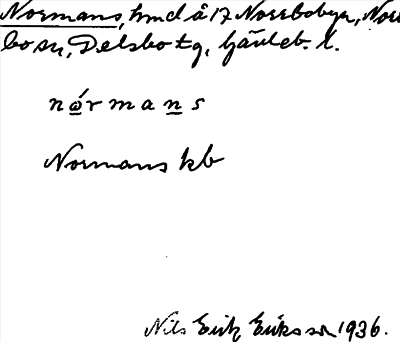 Normans, hmd å 17 Norrbobyn, Norr
bo sn, Delsbo tg, Gävleb. l.
nǿrmans
Normans kb
Nils Erik Eriksson 1936.